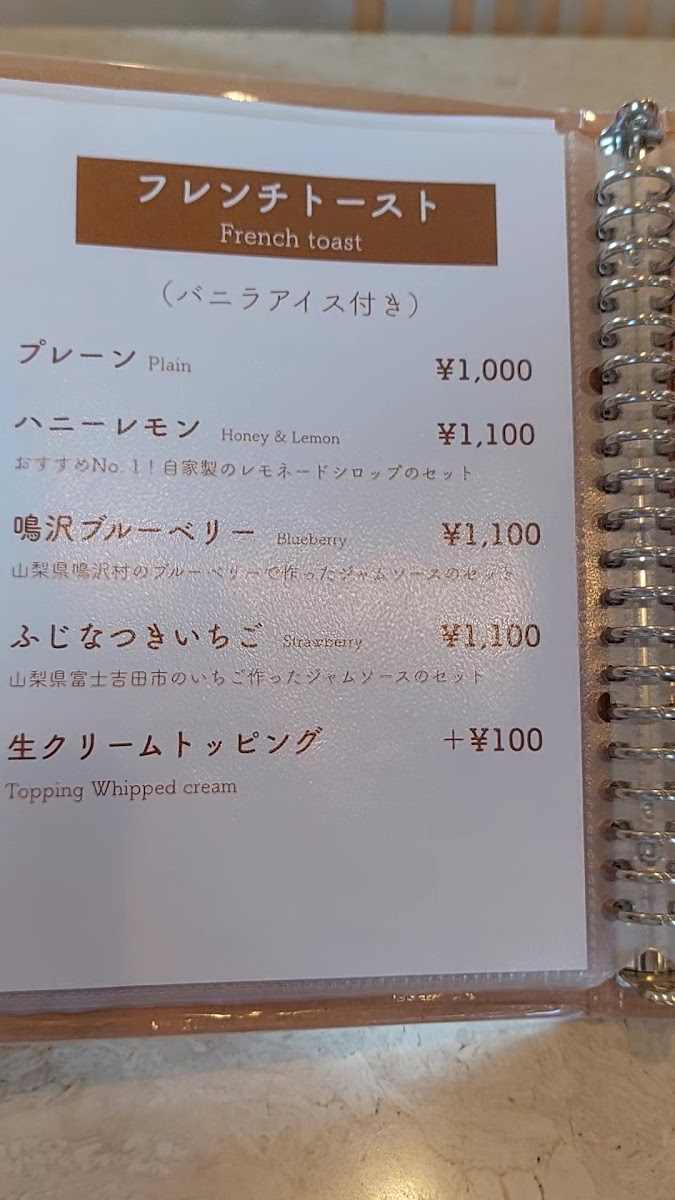 フレンチトースト
French toast
（バニラアイス付き）
プレーン Plain ¥1,000
ハニーレモン Honey & Lemon ¥1,100
おすすめNo.1！自家製のレモネードシロップのセット
鳴沢ブルーベリー Blueberry ¥1,100
山梨県鳴沢村のブルーベリーで作ったジャムソースのセット
ふじなつきいちご Strawberry ¥1,100
山梨県富士吉田市のいちご作ったジャムソースのセット
生クリームトッピング +¥100
Topping Whipped cream